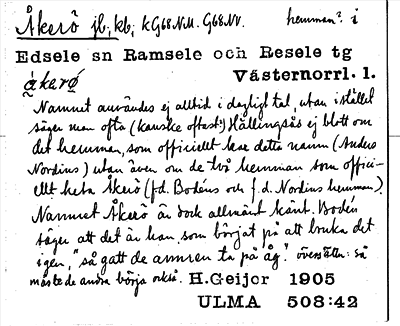 Åkerö jb, kb, KG68NM. G68NV. hemman? i
Edsele sn Ramsele och Resele tg
Västernorrl. l.
åkerö
Namnet användes ej alltid i dagligt tal, utan istället
säger man ofta (kanske oftast) Hällingsås ej blott om
det hemman, som officiellt har detta namn (Anders
Nordins) utan även om de två hemman som offici-
ellt heta Åkerö (f.d. Bodéns och f.d. Nordins hemman).
Namnet Åkerö är dock allmänt känt. Bodén
säger att det är han, som börjat på att bruka det
igen, "så gatt de annren ta på åg." översättn: så
måste de andra börja också. H.Geijer 1905
ULMA 508:42